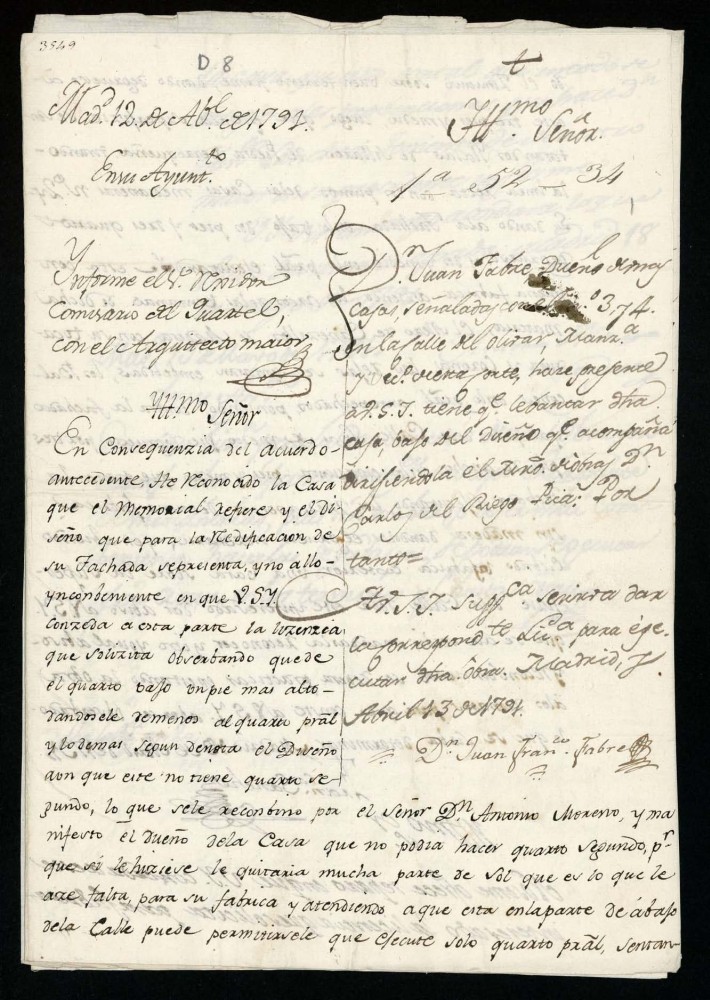 3549
D 8
†
Mad.d 12. de Ab.l de 1791.
En su Ayunt.to
Yll.mo Señor.
1a e 52 34
1
Ynforme el S.or
Comisario del Quartel,
con el Arquitecto maior
D.n Juan Fabre, Dueño de unas
casas, señaladas con el n.o 3, 74.
en la Calle del olivar Manz.a
de esta Corte, hace presente
a V.S.I. tiene q.e lebantar dha
casa, bajo del Diseño q.e acompaña
dirisiendola el Mro. de obras D.n
Carlos del Riego Pica: Por
tanto=
A V.S.I. supp.ca se sirva dar
la correspond.te Lic.a para ege-
cutar dha. obra. Madrid, y
Abril 13 de 1791.
D.n Juan Fran.co Fabre
Yll.mo Señor
En Consequenzia del acuerdo
antecedente, He Reconocido la Casa
que el Memorial Refiere y el di-
seño que para la Redificacion de
su Fachada se presenta, y no allo
ynconbeniente en que V.S.Y.
conzeda a esta parte la lizenzia
que solizita obserbando quede
el quarto bajo un pie mas alto
dandosele de menos al quarto pral
y lo demas segun denota el Diseño
aun que este no tiene quarto se-
gundo, lo que se le reconbino por el Señor D.n Antonio Moreno, y ma
nifesto el Dueño de la Casa que no podia hacer quarto segundo, p.r
que si le hiziese le quitaria mucha parte de sol que es lo que le
aze falta, para su fabrica y atendiendo a que esta en la parte de abajo
de la Calle puede permitirsele que ejecute solo quarto pral, sentan-